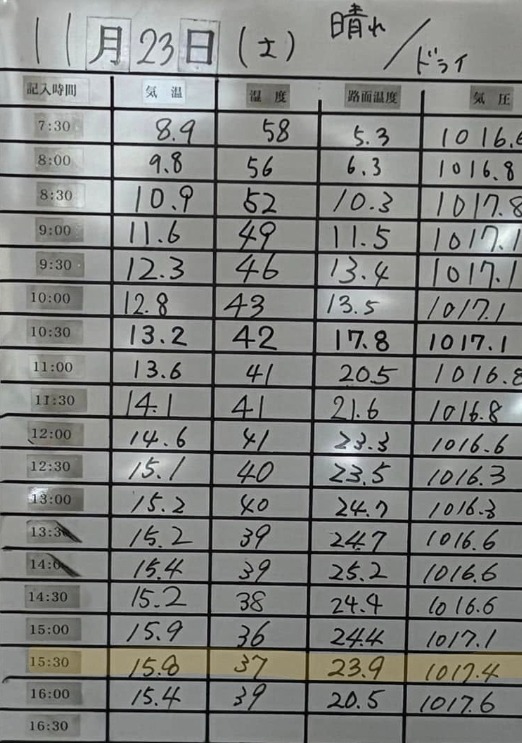 11月23日(土) 晴れ/ドライ
記入時間 気温 湿度 路面温度 気圧
7:30 8.9 58 5.3 1016.6
8:00 9.8 56 6.3 1016.8
8:30 10.9 52 10.3 1017.8
9:00 11.6 49 11.5 1017.1
9:30 12.3 46 13.4 1017.1
10:00 12.8 43 13.5 1017.1
10:30 13.2 42 17.8 1017.1
11:00 13.6 41 20.5 1016.8
11:30 14.1 41 21.6 1016.8
12:00 14.6 41 23.3 1016.6
12:30 15.1 40 23.5 1016.3
13:00 15.2 40 24.7 1016.3
13:30 15.2 39 24.7 1016.6
14:00 15.4 39 25.2 1016.6
14:30 15.2 38 24.9 1016.6
15:00 15.9 36 24.4 1017.1
15:30 15.8 37 23.9 1017.4
16:00 15.4 39 20.5 1017.6
16:30